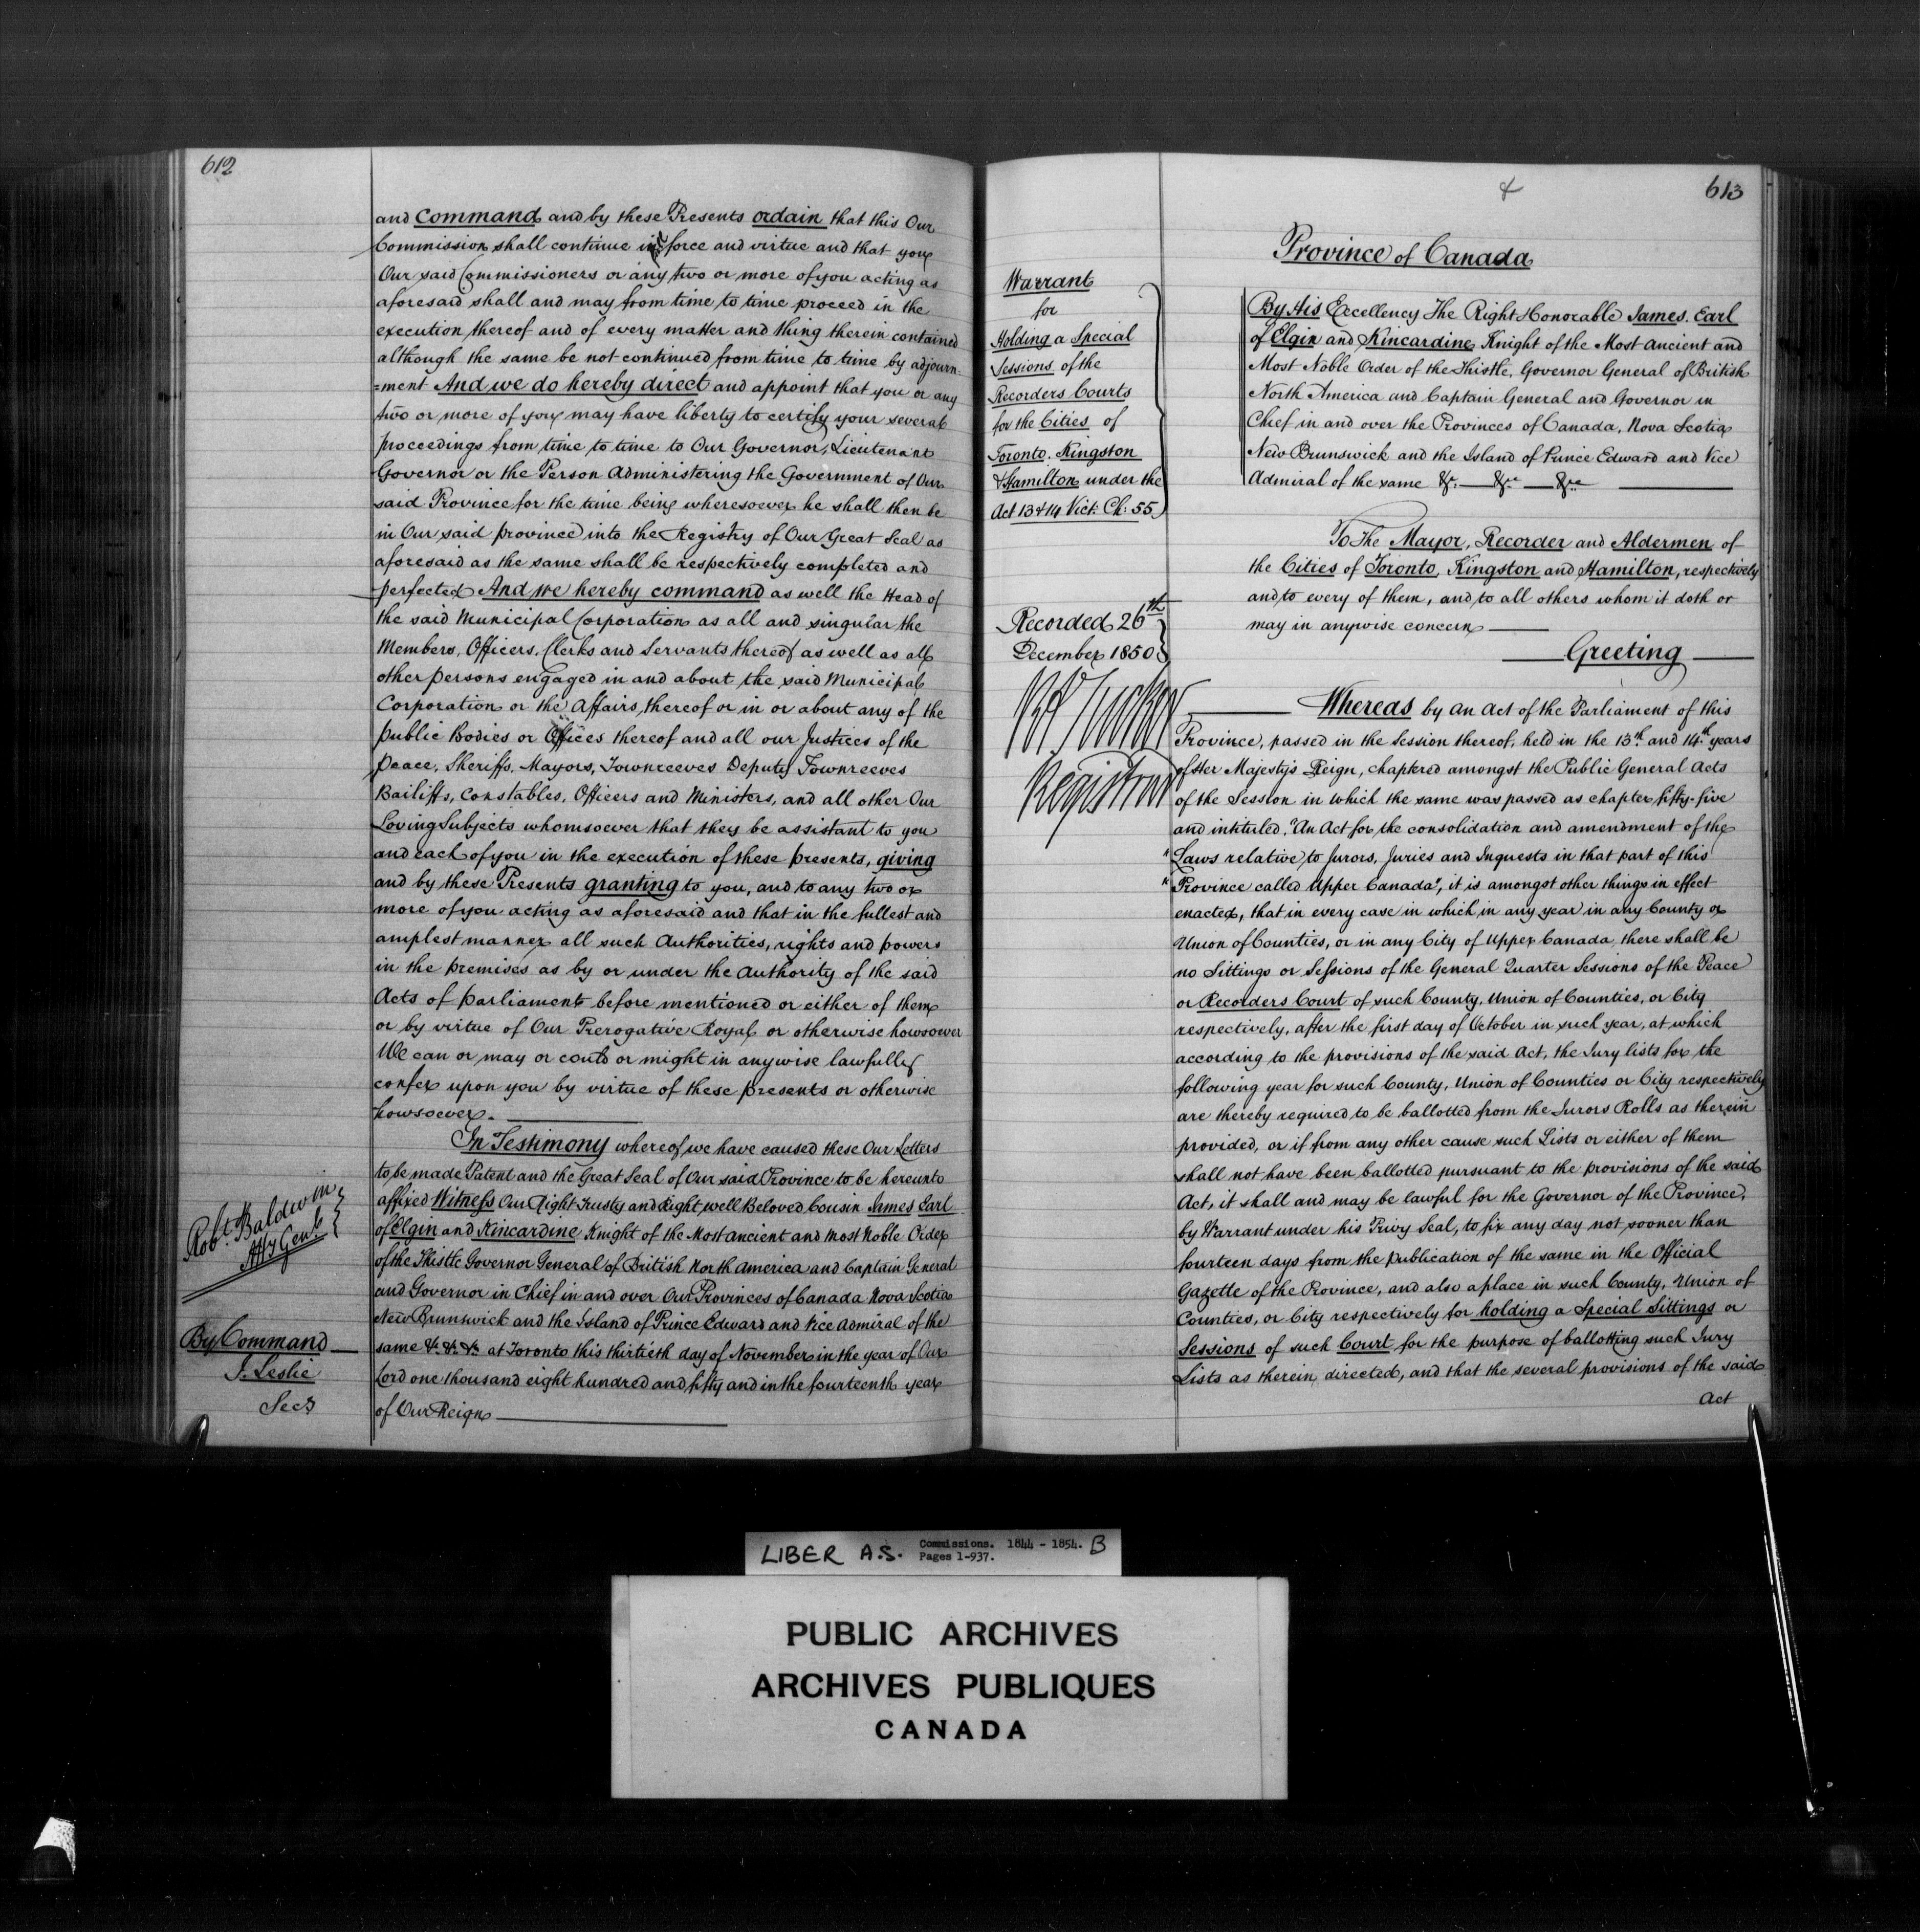 612
and command and by these Presents ordain that this Our
Commission shall continue in force and virtue and that you
Our said Commissioners or any two or more of you acting as
aforesaid shall and may from time to time proceed in the
execution thereof and of every matter and thing therein contained
although the same be not continued from time to time by adjourn-
=ment And we do hereby direct and appoint that you or any
two or more of you may have liberty to certify your several
proceedings from time to time to Our Governor, Lieutenant
Governor or the Person Administering the Government of Our
said Province for the time being wheresoever he shall then be
in Our said province into the Registry of Our Great Seal as
aforesaid as the same shall be respectively completed and
perfected And we hereby command as well the Head of
the said Municipal Corporation as all and singular the
Members, Officers, Clerks and Servants thereof as well as all
other persons engaged in and about the said Municipal
Corporation or the Affairs thereof or in or about any of the
public Bodies or Offices thereof and all our Justices of the
Peace, Sheriffs, Mayors, Townreeves Deputy Townreeves
Bailiffs, Constables, Officers and Ministers, and all other Our
Loving Subjects whomsoever that they be assistant to you
and each of you in the execution of these presents, giving
and by these Presents granting to you, and to any two or
more of you acting as aforesaid and that in the fullest and
amplest manner all such Authorities, rights and powers
in the premises as by or under the authority of the said
Acts of parliament before mentioned or either of them
or by virtue of Our Prerogative Royal or otherwise howsoever
We can or may or could or might in anywise lawfully
confer upon you by virtue of these presents or otherwise
howsoever.
In Testimony whereof we have caused these Our Letters
to be made Patent and the Great Seal of Our said Province to be hereunto
affixed Witness Our Right Trusty and Right well Beloved Cousin James Earl
of Elgin and Kincardine Knight of the Most Ancient and Most Noble Order
of the Thistle Governor General of British North America and Captain General
and Governor in Chief in and over Our Provinces of Canada Nova Scotia
New Brunswick and the Island of Prince Edward and Vice Admiral of the
same &c &c &c at Toronto this thirtieth day of November in the year of Our
Lord one thousand eight hundred and fifty and in the fourteenth year
of Our Reign
Robt Baldwin
Atty Genl
By Command
J. Leslie
Secy
613
Province of Canada
Warrant
for
Holding a Special
Sessions of the
Recorders Courts
for the Cities of
Toronto, Kingston
& Hamilton under the
Act 13 & 14 Vict: Ch: 55
Recorded 26th
December 1850
Registrar
By His Excellency The Right Honorable James, Earl
of Elgin and Kincardine, Knight of the Most Ancient and
Most Noble Order of the Thistle, Governor General of British
North America and Captain General and Governor in
Chief in and over the Provinces of Canada, Nova Scotia
New Brunswick and the Island of Prince Edward and Vice
Admiral of the same &c. &c &c
To The Mayor, Recorder and Aldermen of
the Cities of Toronto, Kingston and Hamilton, respectively
and to every of them, and to all others whom it doth or
may in anywise concern
Greeting
Whereas by an Act of the Parliament of this
Province, passed in the Session thereof, held in the 13th. and 14th. years
of Her Majesty's Reign, chaptered amongst the Public General Acts
of the Session in which the same was passed as chapter fifty-five
and intituled, "An Act for the consolidation and amendment of the
"Laws relative to Jurors, Juries and Inquests in that part of this
"Province called Upper Canada", it is amongst other things in effect
enacted, that in every case in which in any year in any County or
Union of Counties, or in any City of Upper Canada, there shall be
no Sittings or Sessions of the General Quarter Sessions of the Peace
or Recorders Court of such County, Union of Counties, or City
respectively, after the first day of October in such year, at which
according to the provisions of the said Act, the Jury lists for the
following year for such County, Union of Counties or City respectively
are thereby required to be ballotted from the Jurors Rolls as therein
provided, or if from any other cause such Lists or either of them
shall not have been ballotted pursuant to the provisions of the said
Act, it shall and may be lawful for the Governor of the Province,
by Warrant under his Privy Seal, to fix any day not sooner than
fourteen days from the publication of the same in the Official
Gazette of the Province, and also a place in such County, Union of
Counties, or City respectively for holding a Special Sittings or
Sessions of such Court for the purpose of ballotting such Jury
Lists as therein directed, and that the several provisions of the said
Act
LIBER A.S. Commissions. 1844 - 1854. B
Pages 1-937.
PUBLIC ARCHIVES
ARCHIVES PUBLIQUES
CANADA